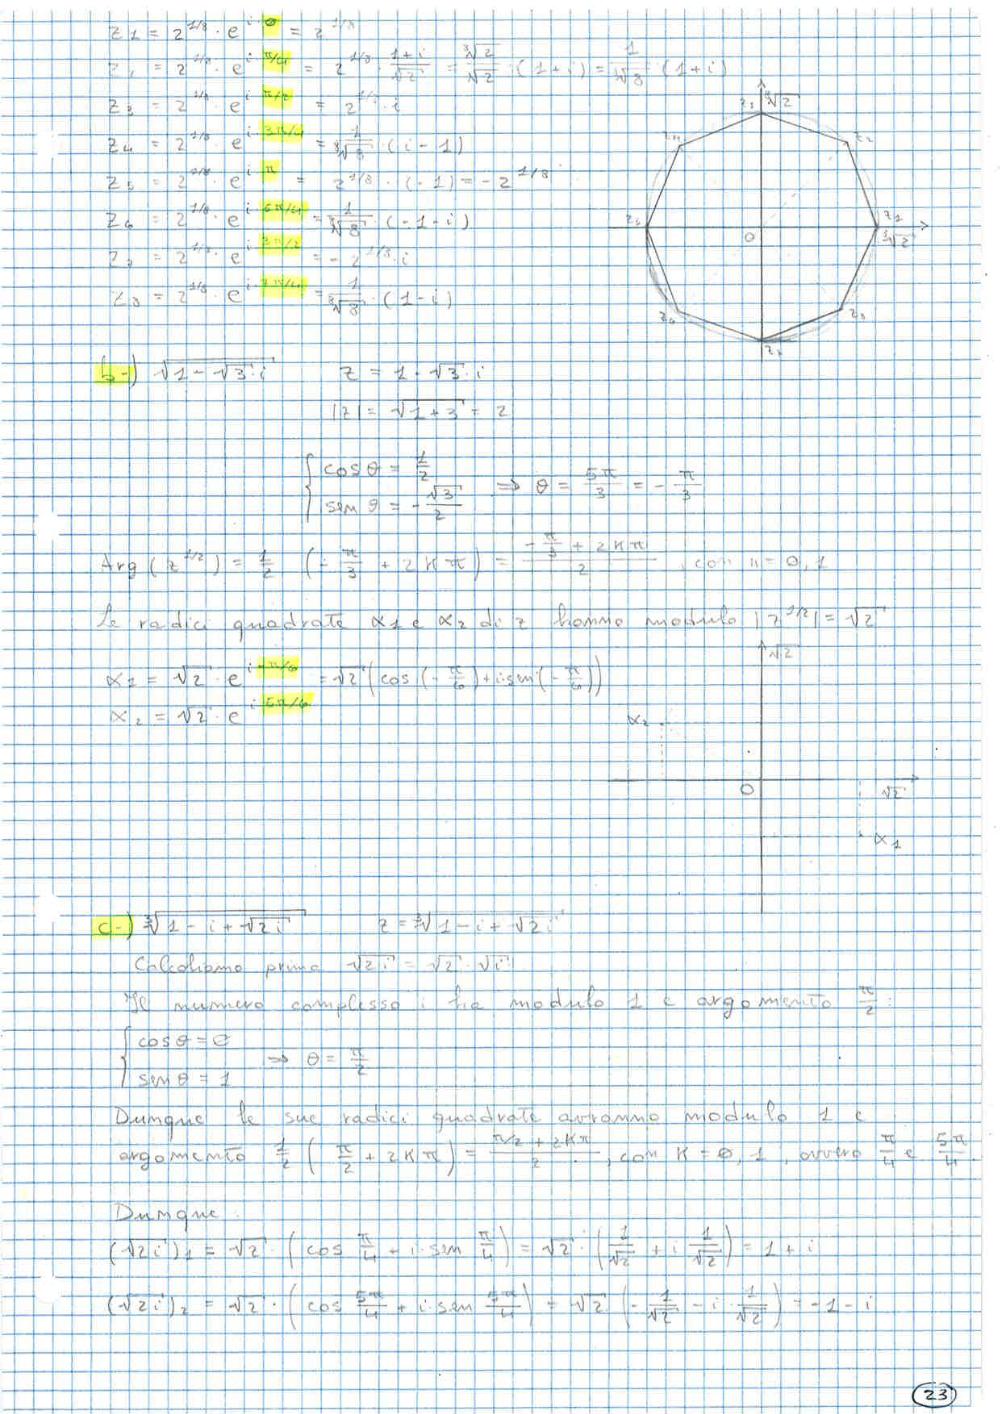 z1 = 2^{1/8} · e^{i·0} = 2^{1/8}
z2 = 2^{1/8} · e^{i·π/4} = 2^{1/8} · (1+i)/√2 = ⁸√2/√2 · (1+i) = 1/⁸√8 · (1+i)
z3 = 2^{1/8} · e^{i·π/2} = 2^{1/8} · i
z4 = 2^{1/8} · e^{i·3π/4} = 1/⁸√8 · (i-1)
z5 = 2^{1/8} · e^{i·π} = 2^{1/8} · (-1) = -2^{1/8}
z6 = 2^{1/8} · e^{i·5π/4} = 1/⁸√8 · (-1-i)
z7 = 2^{1/8} · e^{i·3π/2} = -2^{1/8} · i
z8 = 2^{1/8} · e^{i·7π/4} = 1/⁸√8 · (1-i)
z3 ⁸√2
z4 z2
z5 0 z1
⁸√2
z6 z8
z7
b-) √(1-√3·i) z = 1-√3·i
|z| = √(1+3) = 2
{ cosθ = 1/2
sen θ = -√3/2 ⇒ θ = 5π/3 = -π/3
Arg(z^{1/2}) = 1/2 (-π/3 + 2Kπ) = (-π/3 + 2Kπ)/2, con K=0,1
Le radici quadrate α1 e α2 di z hanno modulo |z^{1/2}| = √2
√2
α1 = √2 · e^{i·-π/6} = √2 (cos(-π/6) + i·sen(-π/6))
α2 = √2 · e^{i·5π/6}
α2
0 √2
α1
c-) ³√(1-i+√2i) z = ³√(1-i+√2i)
Calcoliamo prima √2i = √2 · √i
Il numero complesso i ha modulo 1 e argomento π/2:
{ cosθ = 0
senθ = 1 ⇒ θ = π/2
Dunque le sue radici quadrate avranno modulo 1 e
argomento 1/2 (π/2 + 2Kπ) = (π/2 + 2Kπ)/2, con K=0,1, ovvero π/4 e 5π/4.
Dunque:
(√2i)1 = √2 · (cos π/4 + i·sen π/4) = √2 · (1/√2 + i 1/√2) = 1+i
(√2i)2 = √2 · (cos 5π/4 + i·sen 5π/4) = √2 (-1/√2 - i·1/√2) = -1-i
23